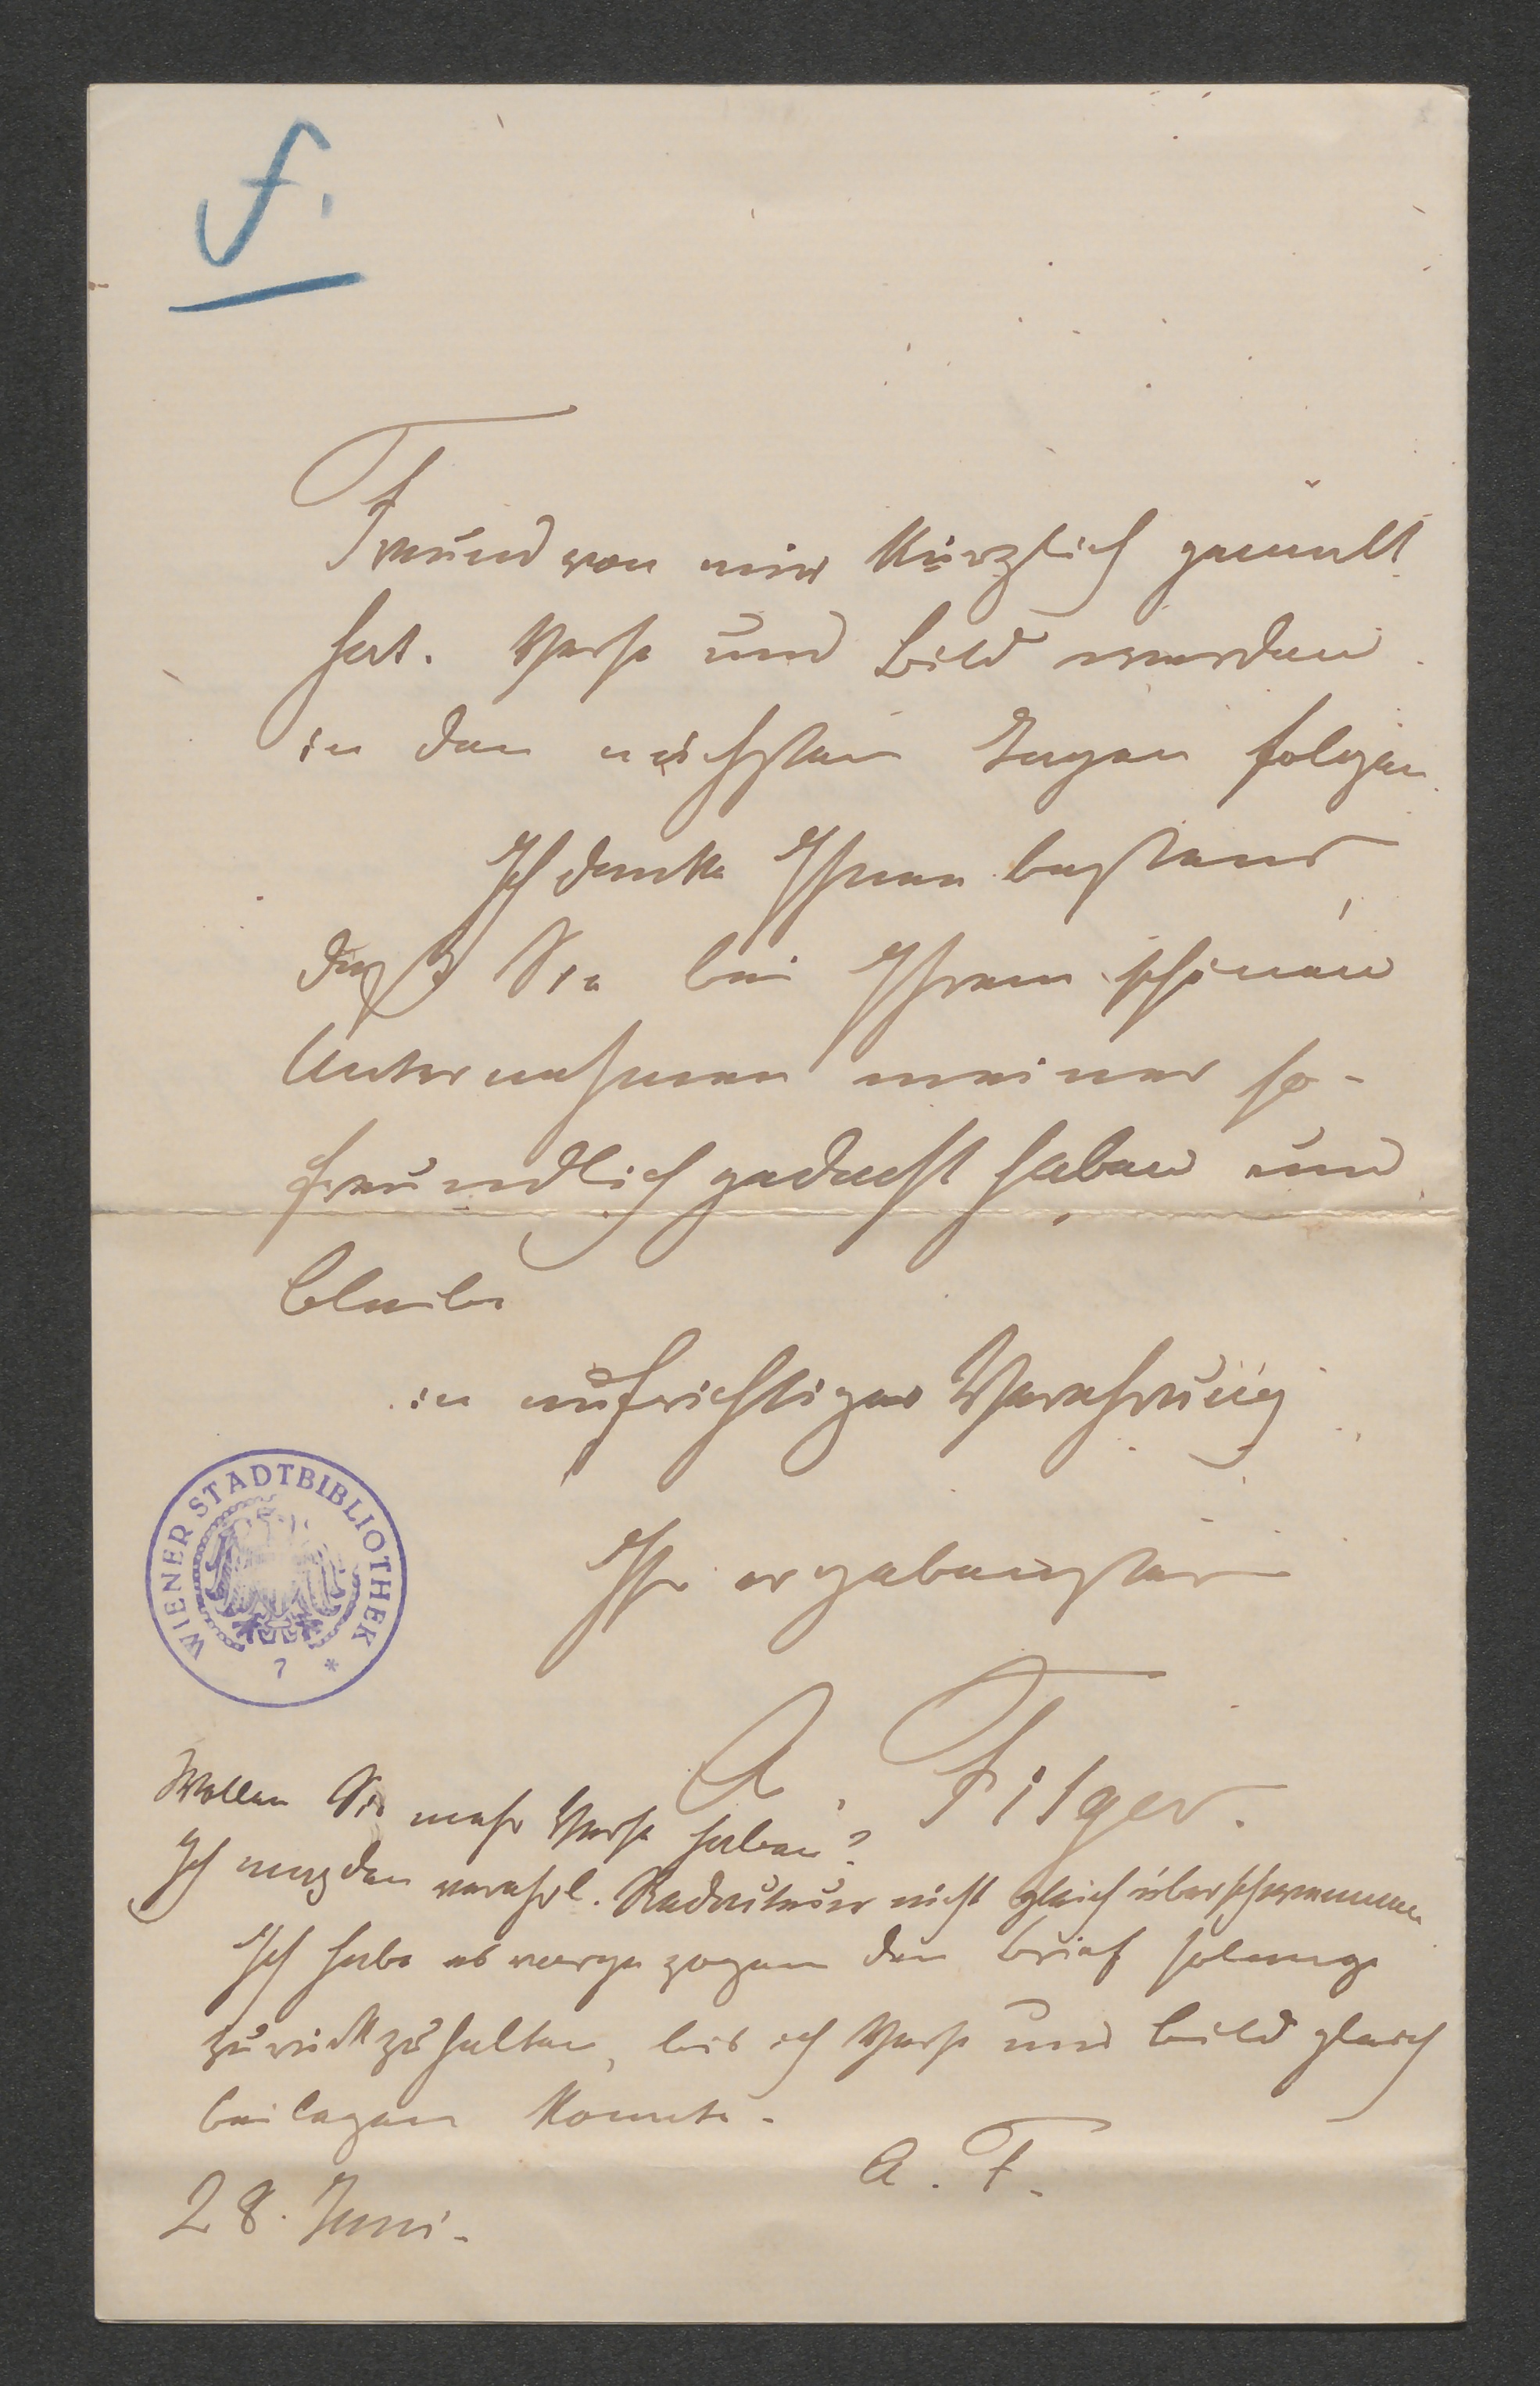 f.
Freund von mir kürzlich gemalt
hat. Verse und Bild werden
in den nächsten Tagen folgen.
Ich danke Ihnen bestens,
daß Sie bei Ihrem schönen
Unternehmen meiner so
freundlich gedacht haben und
bleibe
in aufrichtiger Verehrung
Ihr ergebenster
A. Fitger.
WIENER STADTBIBLIOTHEK
7 *
Wollen Sie mehr Verse haben?
Ich mag den verehrl. Redakteur nicht gleich überschwemmen
Ich habe es vorgezogen den Brief solange
zurückzuhalten, bis ich Verse und Bild gleich
beilegen konnte.
A. F.
28. Juni.